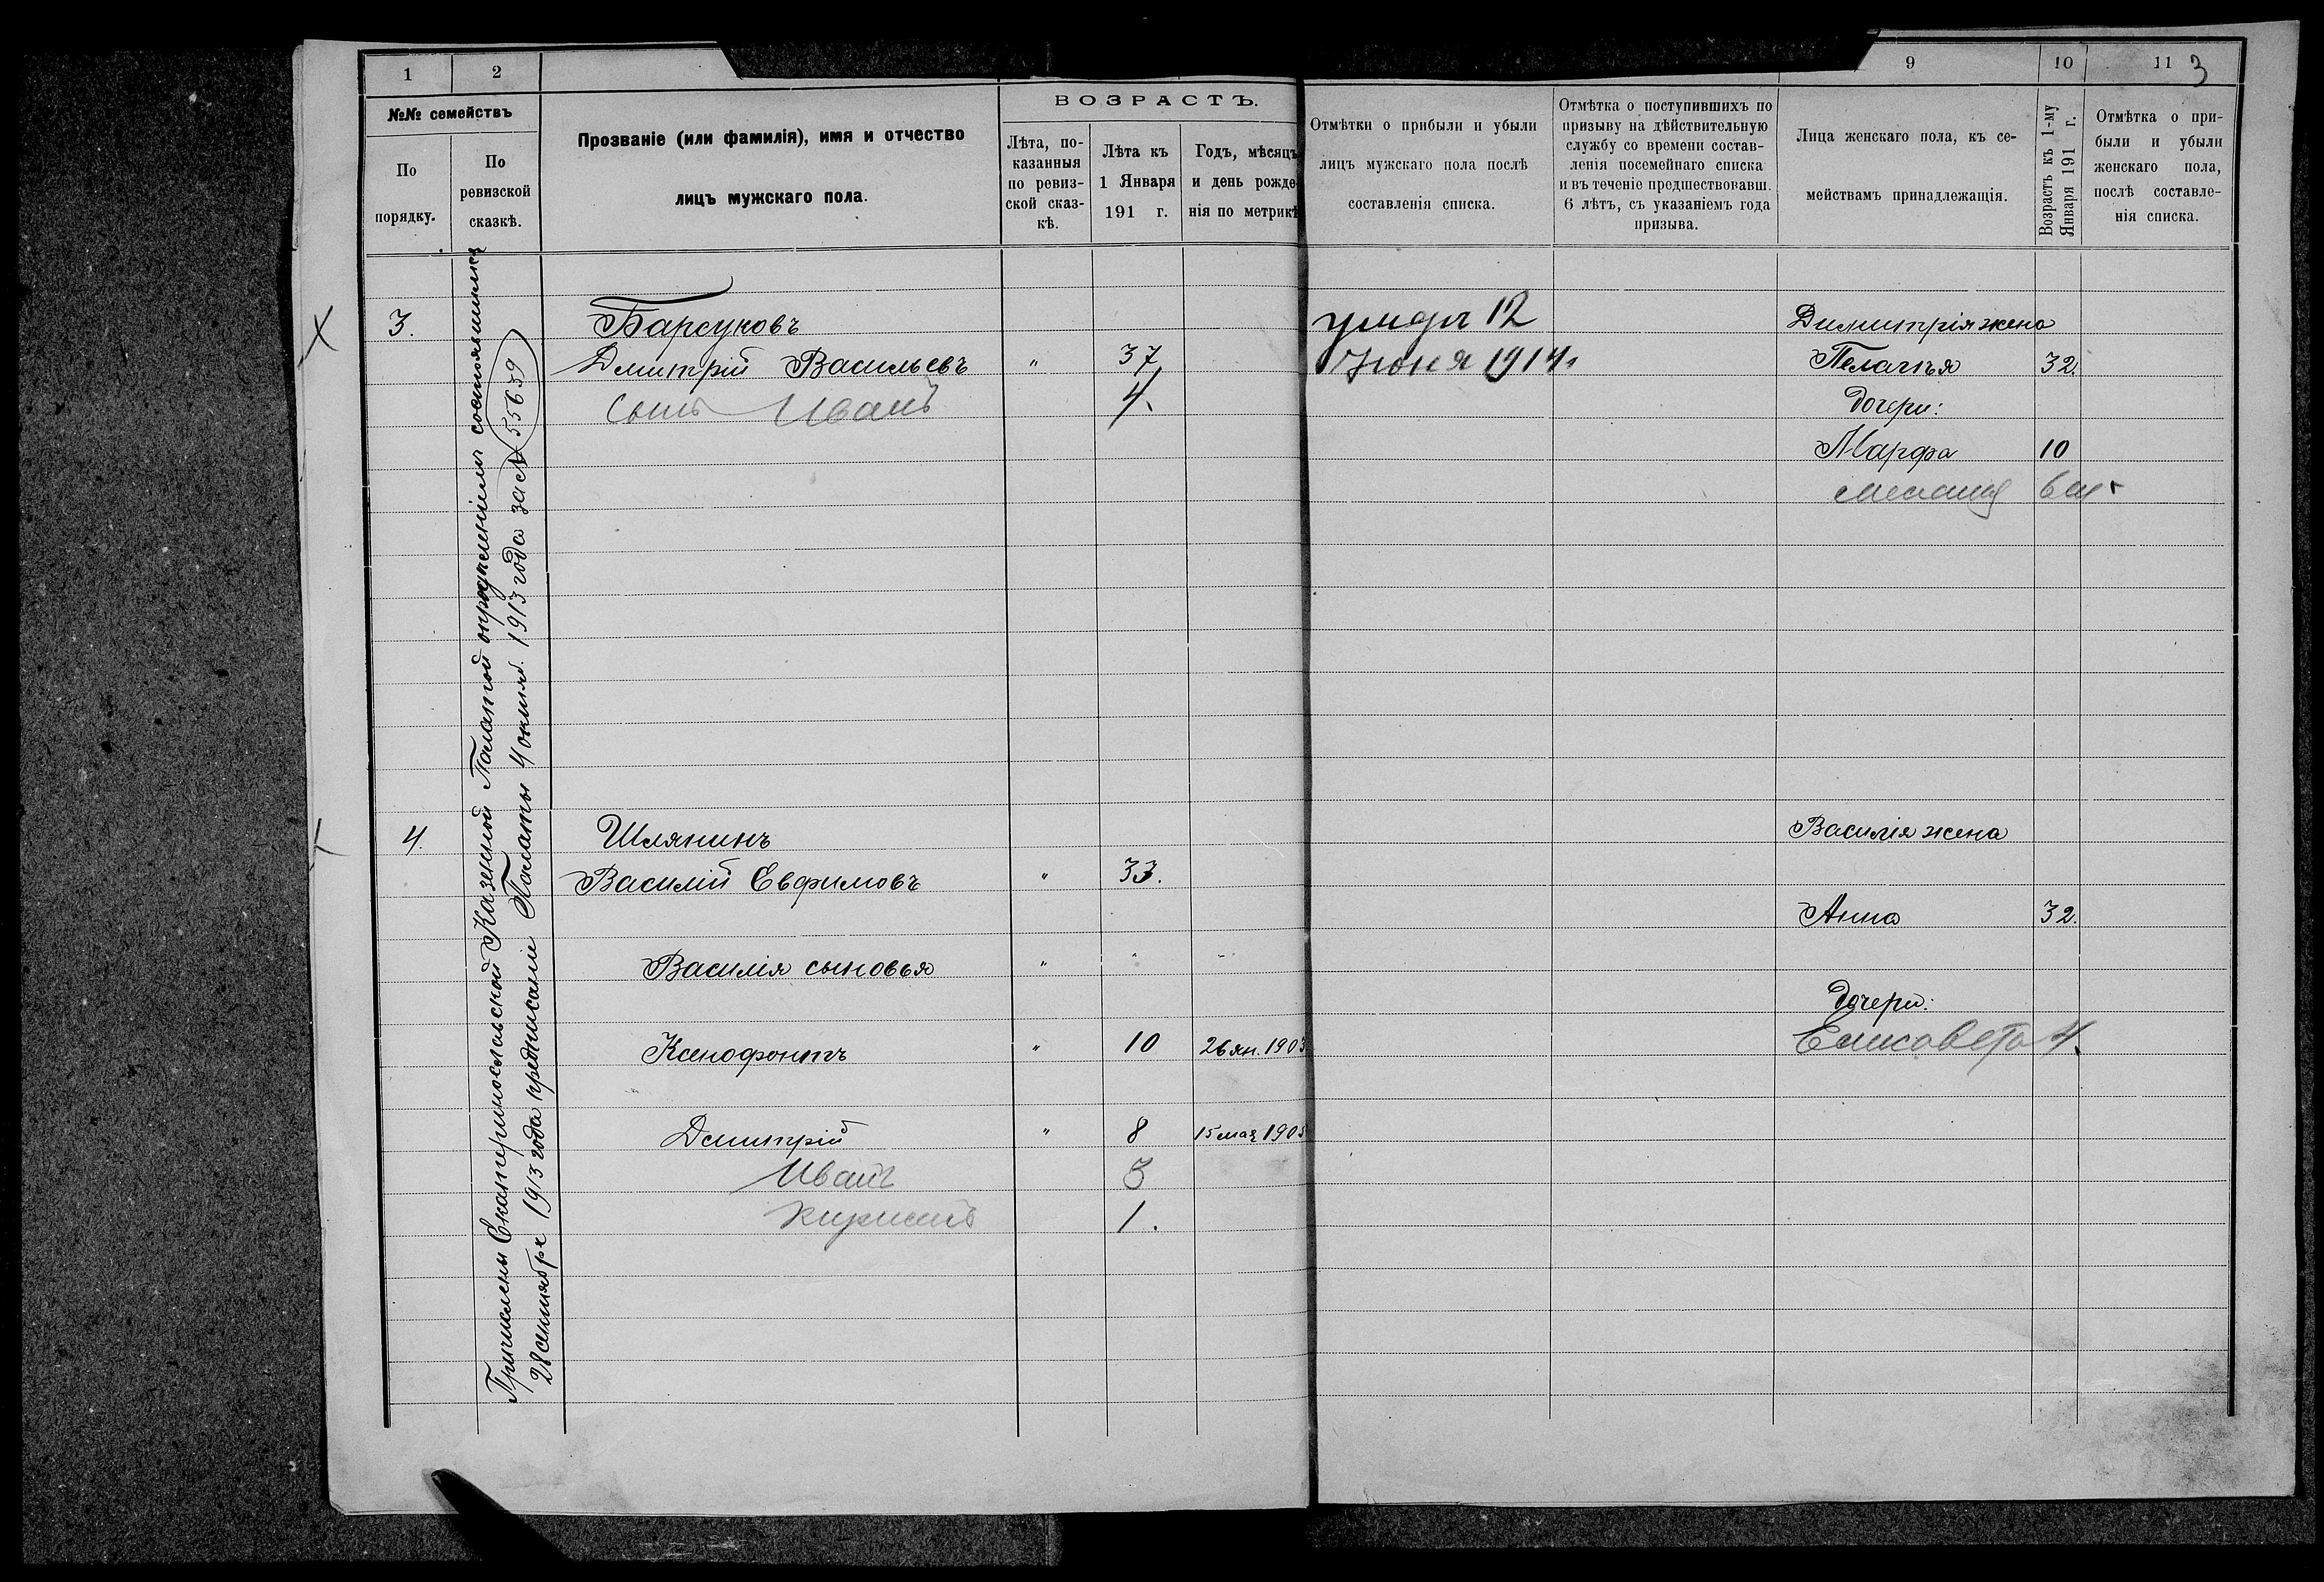 1 2 9 10 11 3
№№ семействъ
По порядку.
По ревизской сказкѣ.
Прозваніе (или фамилія), имя и отчество
лицъ мужскаго пола.
ВОЗРАСТЪ.
Лѣта, по-
казанныя
по ревиз-
ской сказ-
кѣ.
Лѣта къ
1 Января
191 г.
Годъ, мѣсяцъ
и день рожде
нія по метрикѣ
Отмѣтки о прибыли и убыли
лицъ мужскаго пола послѣ
составленія списка.
Отмѣтка о поступившихъ по
призыву на дѣйствительную
службу со времени состав-
ленія посемейнаго списка
и въ теченіе предшествовавш.
6 лѣтъ, съ указаніемъ года
призыва.
Лица женскаго пола, къ се-
мействамъ принадлежащія.
Возрастъ къ 1-му
Января 191 г.
Отмѣтка о при-
были и убыли
женскаго пола,
послѣ составле-
нія списка.
Причислены Екатеринославской Казенной Палатой опредѣленіемъ состоявшимся
28 сентября 1913 года предписаніе Палаты 4 октяб. 1913 года за № 55639
3. Барсуковъ умеръ 12 Димитрія жена
Дмитрій Васильевъ " 37 Июня 1914г Пелагѣя 32.
сынъ Иванъ 4. Дочери:
Марфа 10
6 м
4. Шлянинъ Василія жена
Василій Евфимовъ " 33.
Анна 32.
Василія сыновья "
Дочери:
Ксенофонтъ " 10 26 ян. 1903 Елисавета 4.
Дмитрій " 8 15 мая 1905
Иванъ 3
Кирилъ 1.